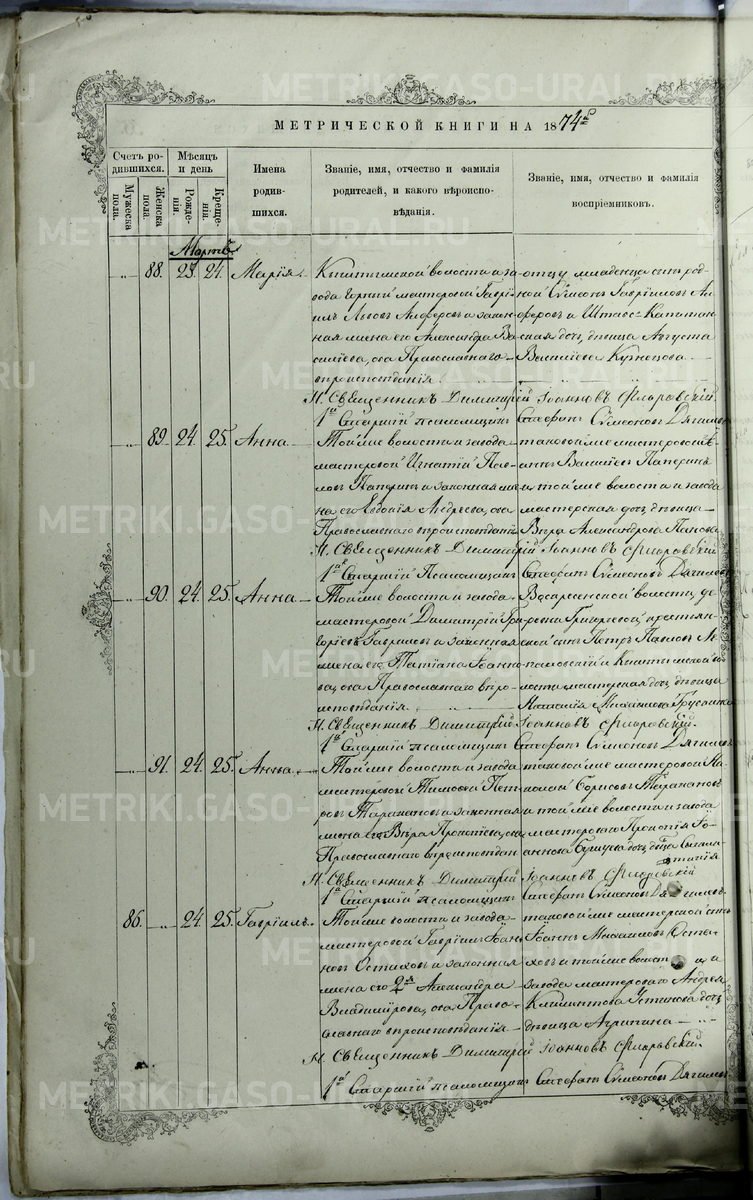 МЕТРИЧЕСКОЙ КНИГИ НА 1874
Счетъ родившихся.
Мужеска пола.
Женска пола.
Мѣсяцъ и день
Рожденія.
Крещенія.
Имена родившихся.
Званіе, имя, отчество и фамилія родителей, и какого вѣроисповѣданія.
Званіе, имя, отчество и фамилія воспріемниковъ.
Мартъ
88. 23. 24. Марія
волости и завода
Горный мастеровой
законная жена его Александра Ва-
силіева, оба Православнаго
вѣроисповѣданія.
отцу младенца сынъ род-
ной Симеонъ Гавріиловъ
и Штабсъ-Капитан-
ская дочь дѣвица Августа
Василіева Кузнецова
Н. Священникъ Димитрій Іоанновъ Флоровскій.
1й Старшій псаломщикъ Стефанъ Симеоновъ
89. 24. 25. Анна
Той же волости и завода
мастеровой Игнатій
и законная же-
на его Евдокія Андреева, оба
Православнаго вѣроисповѣданія
таковой же мастеровой
Василіевъ
и той же волости и завода
мастерская дочь дѣвица
Вѣра Александрова Панова
Н. Священникъ Димитрій Іоанновъ Флоровскій
1й Старшій Псаломщикъ Стефанъ Симеоновъ
90. 24. 25. Анна
Той же волости и завода
мастеровой Димитрій Гри-
горіевъ Гавриловъ и законная
жена его Татіана Іоанно-
ва, оба Православнаго вѣро-
исповѣданія
Воскресенской волости, де-
ревни Григорьевой, крестьян-
ской сынъ Петръ Павловъ
и
мастерская дочь дѣвица
Н. Священникъ Димитрій Іоанновъ Флоровскій.
1й Старшій псаломщикъ Стефанъ Симеоновъ
91. 24. 25. Анна
Той же волости и завода
мастеровой Тимофей Пет-
ровъ Таракановъ и законная
жена его Вѣра Прокопіева, оба
Православнаго вѣроисповѣдан
таковой же мастеровой Ни-
колай Борисовъ Таракановъ
и той же волости и завода
мастерового Прокопія Іо-
аннова дочь
Н. Священникъ Димитрій Іоанновъ Флоровскій
1й Старшій псаломщикъ Стефанъ Симеоновъ
86. 24. 25. Гавріилъ
Той же волости и завода
мастеровой Гавріилъ Іоан-
новъ Остаховъ и законная
жена его 2я Александра
Владимірова, оба Право-
славнаго вѣроисповѣданія
таковой же мастерской сынъ
Іоаннъ Михаиловъ Оста-
ховъ и той же волости и
завода мастерового Андрея
Климентова Устинова дочь
дѣвица Агрипина
Н. Священникъ Димитрій Іоанновъ Флоровскій
1й Старшій псаломщикъ Стефанъ Симеоновъ
METRIKI.GASO-URAL.RU